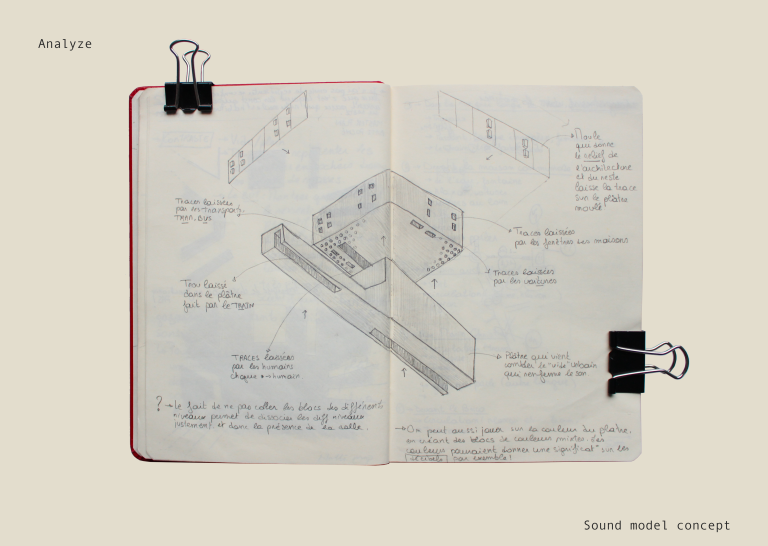 Analyze
Moule
qui suivre
le relief de
l'architecture
et du reste
laisse la trace
sur le plâtre
moulé
Traces laissées
par les transports.
TRAM. BUS
Traces laissées
par les fenêtres des maisons
Traces laissées
par les voitures
Trou laissé
dans le plâtre
fait par le TRAIN
TRACES laissées
par les humains
chaque • → humain
Plâtre qui vient
combler le "vide" urbain
qui renferme le son.
? → Le fait de ne pas coller les blocs des différents
niveaux permet de dissocier les diff niveaux
justement et donc la présence de la
→ On peut aussi jouer sur la couleur du plâtre.
en créant des blocs de couleurs mixtes. Ces
couleurs pourraient donner une significat° sur les
(décibels) par exemple!
Sound model concept